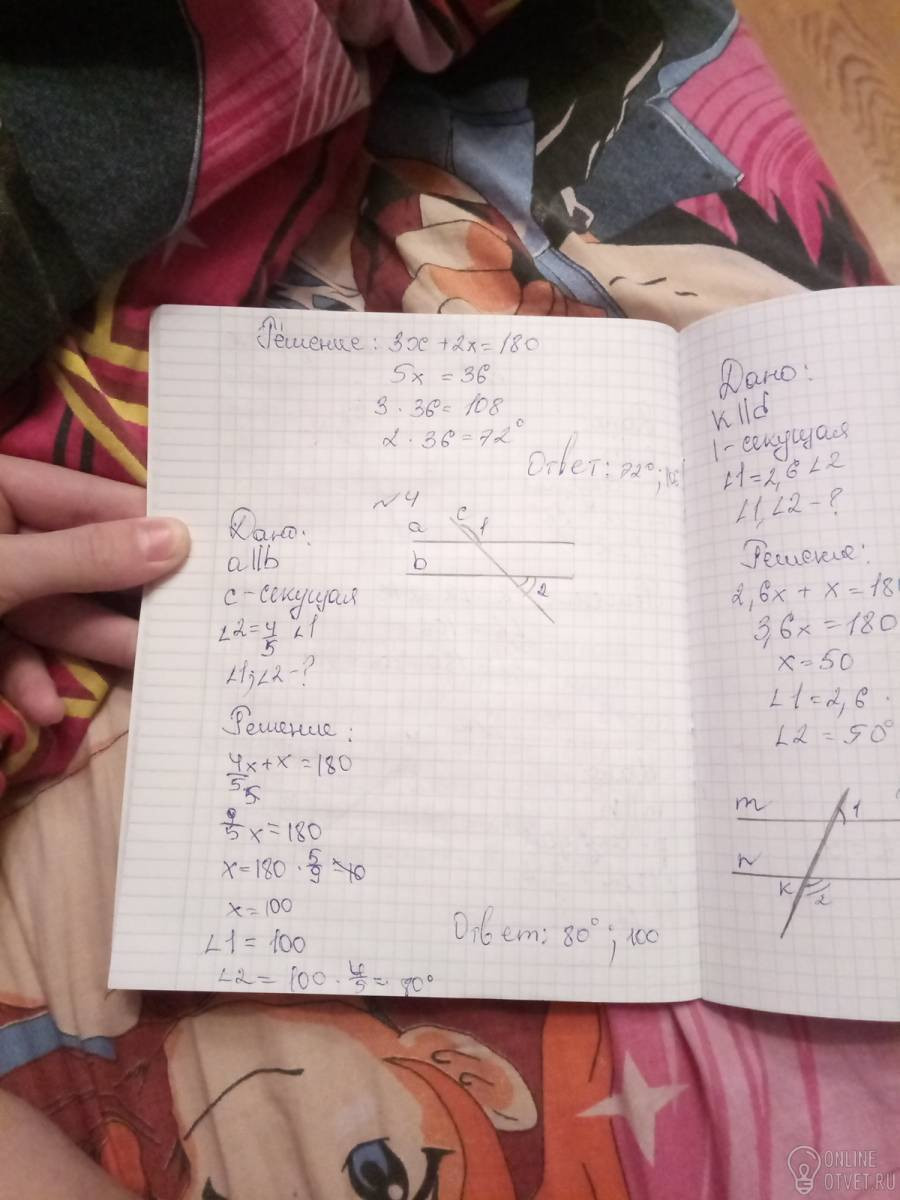 Решение: 3x + 2x = 180
5x = 36
3 · 36 = 108
2 · 36 = 72°
Ответ: 72°;
№4
Дано:
a||b
c - секущая
∠2 = 4/5 ∠1
∠1; ∠2 - ?
a
b
c
1
2
Решение:
4/5x + x = 180
5
9/5 x = 180
x = 180 · 5/9
x = 100
∠1 = 100
∠2 = 100 · 4/5 = 80°
Ответ: 80°; 100
Дано:
k||d
l - секущая
∠1 = 2,6 ∠2
∠1, ∠2 - ?
Решение:
2,6x + x = 180
3,6x = 180
x = 50
∠1 = 2,6 ·
∠2 = 50°
m
1
n
k
2
ONLINE
OTVET.RU